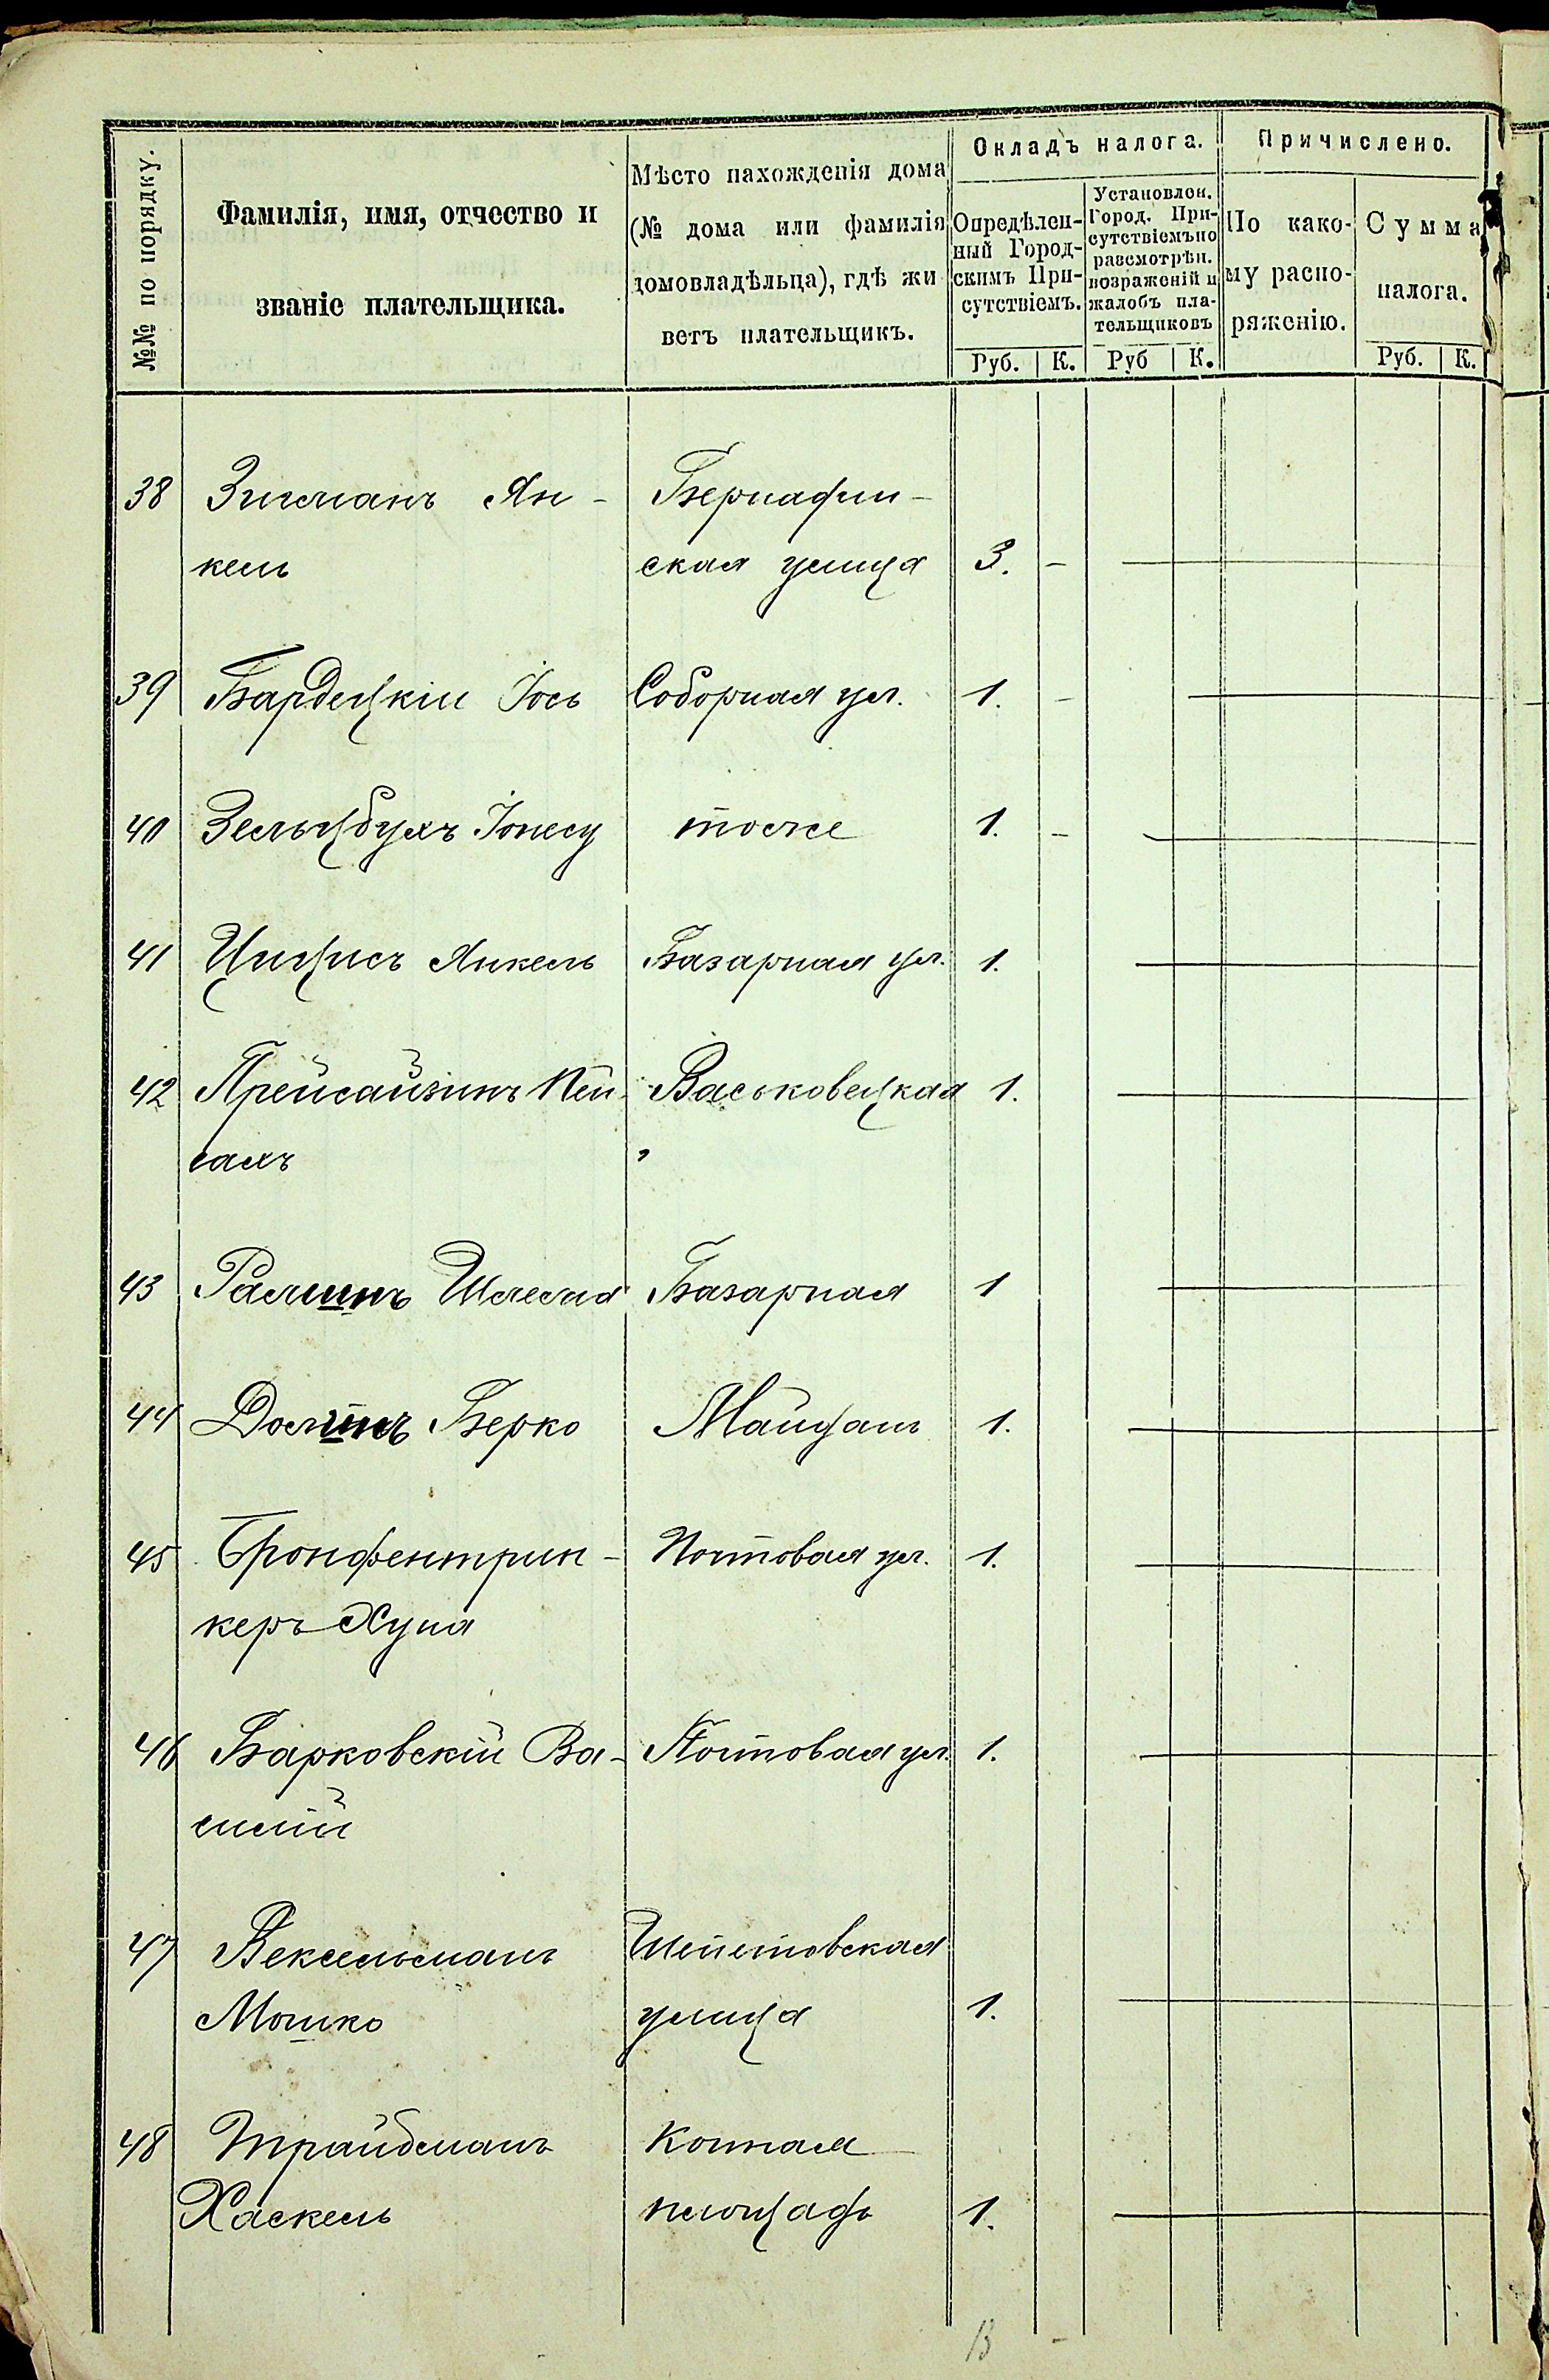 №№ по порядку.
Фамилія, имя, отчество и
званіе плательщика.
Мѣсто нахожденія дома
(№ дома или фамилія
домовладѣльца), гдѣ жи
ветъ плательщикъ.
Окладъ налога.
Опредѣлен-
ный Город-
скимъ При-
сутствіемъ.
Установлен.
Город. При-
сутствіемъ по
разсмотрѣн.
возраженій и
жалобъ пла-
тельщиковъ
Причислено.
По како-
му распо-
ряженію.
Сумма
налога.
Руб. К. Руб К. Руб. К.
38 Зигманъ Ян- Бернадин-
кель ская улица 3. -
39 Бардецкій Іось Соборная ул. 1. -
40 Зельцбухъ тоже 1. -
41 Янкель Базарная ул. 1.
42 Прейсайзинъ Пей- Васьковецкая 1.
сахъ "
43 Шлема Базарная 1
44 Берко Майданъ 1.
45 Бронфентрин- Почтовая ул. 1.
керъ Хуна
46 Барковскій Ва- Почтовая ул. 1.
силій
47 Вексельманъ Шепетовская
Мошко улица 1.
48 Трайбманъ Конная
Хаскель площадь 1.
13 -